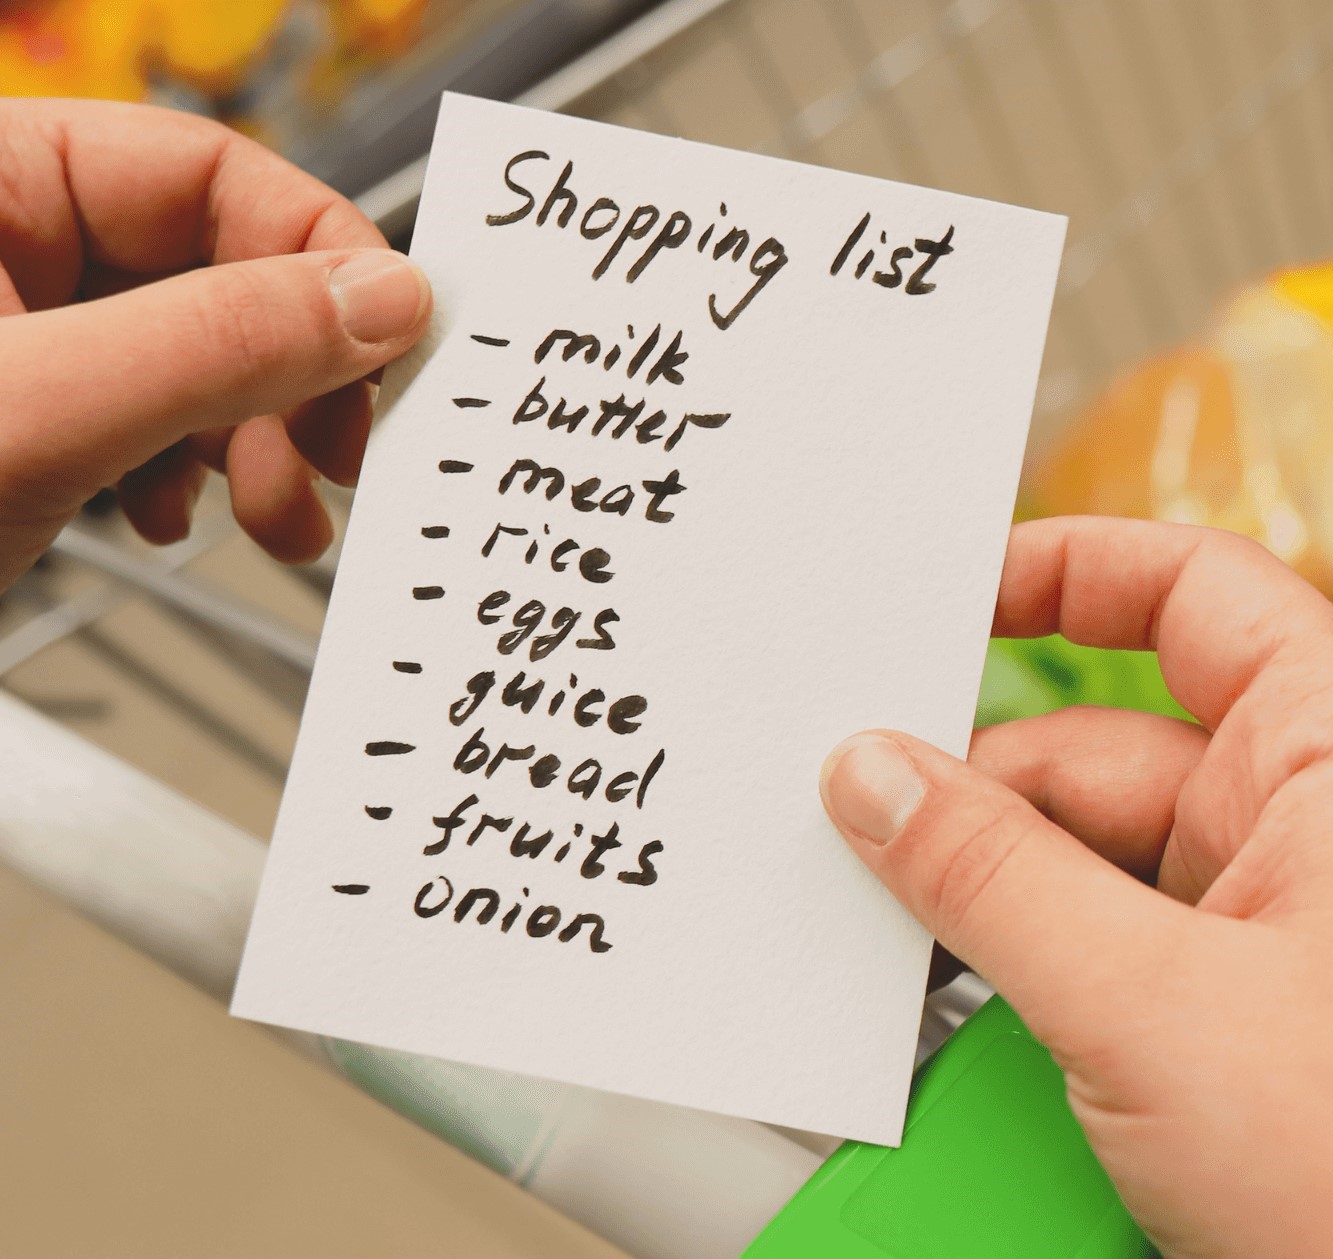 Shopping list
- milk
- butter
- meat
- rice
- eggs
- guice
- bread
- fruits
- onion